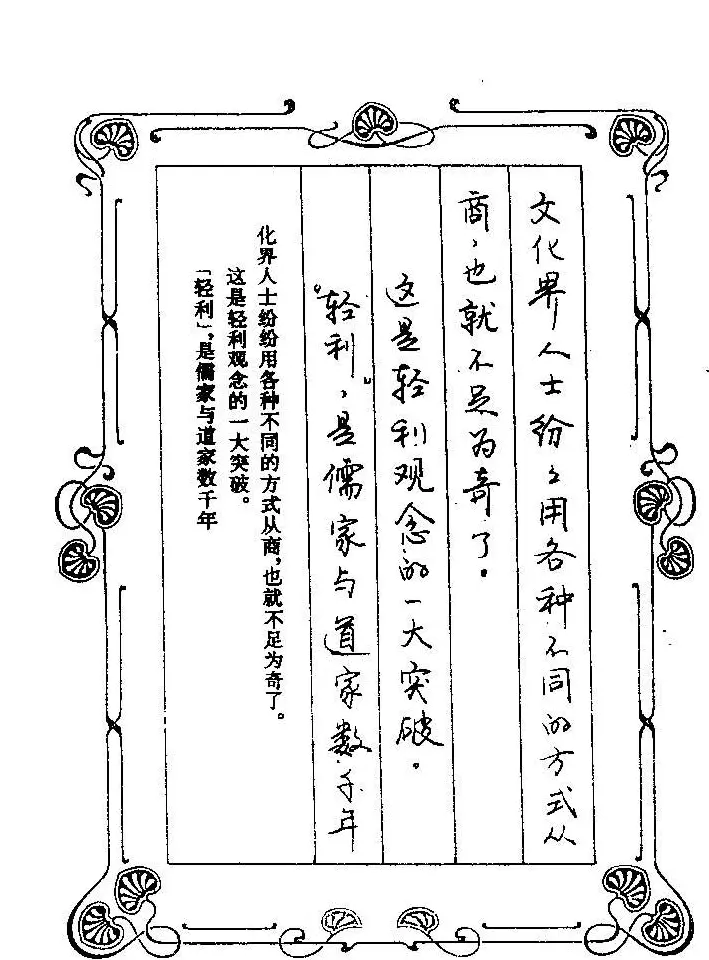 文化界人士纷々用各种不同的方式从
商，也就不足为奇了。
这是轻利观念的一大突破。
“轻利”，是儒家与道家数千年
化界人士纷纷用各种不同的方式从商，也就不足为奇了。
这是轻利观念的一大突破。
「轻利」，是儒家与道家数千年